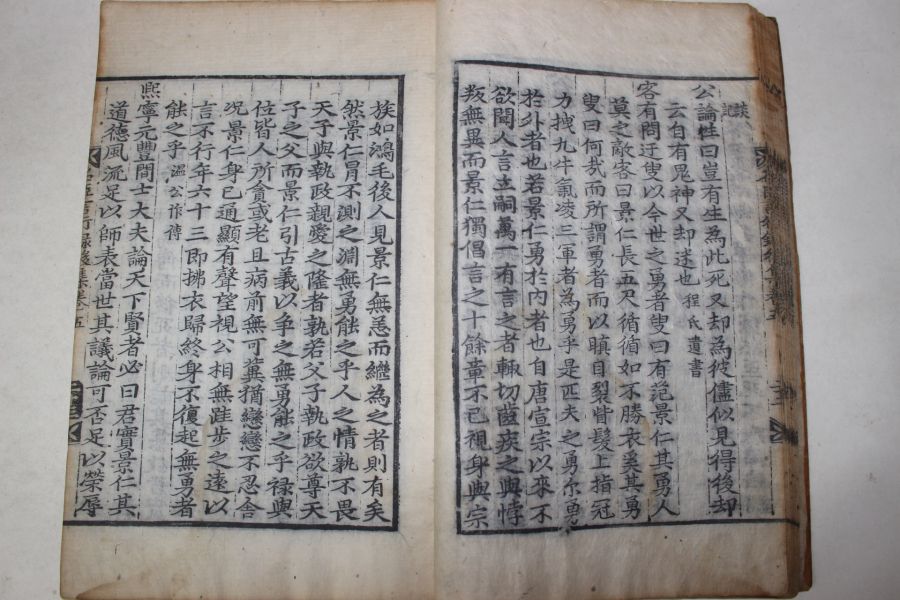 談
記
公論性曰豈有生為此死又却為彼儘似見得後却
云自有鬼神又却迷也 程氏遺書
客有問迂叟以今世之勇者叟曰有范景仁其勇人
莫之敵客曰景仁長五尺循循如不勝衣奚其勇
叟曰何哉而所謂勇者而以瞋目裂眥髮上指冠
力拽九牛氣凌三軍者為勇乎是匹夫之勇尔勇
於外者也若景仁勇於內者也自唐宣宗以來不
欲聞人言立嗣萬一有言之者輒切齒疾之與悖
叛無異而景仁獨倡言之十餘章不已視身與宗
族如鴻毛後人見景仁無恙而繼為之者則有矣
然景仁冐不測之淵無勇能之乎人之情孰不畏
天子與執政親愛之隆者孰若父子執政欲尊天
子之父而景仁引古義以爭之無勇能之乎禄與
位皆人所貪或老且病前無可冀猶戀戀不忍舍
况景仁身已通顯有聲望視公相無跬步之遠以
言不行年六十三即拂衣歸終身不復起無勇者
能之乎 溫公作傳
熙寧元豐間士大夫論天下賢者必曰君實景仁其
道德風流足以師表當世其議論可否足以榮辱
名臣言行錄後集卷五